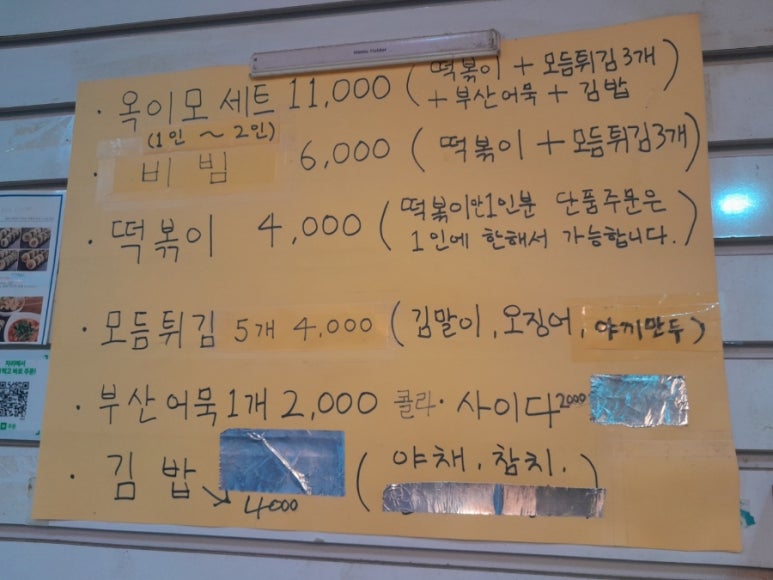 · 옥이모 세트 11,000 (떡볶이 + 모듬튀김 3개
+ 부산어묵 + 김밥)
(1인 ~ 2인)
· 비 빔 6,000 (떡볶이 + 모듬튀김3개)
· 떡볶이 4,000 (떡볶이만1인분 단품주문은
1인에 한해서 가능합니다.)
· 모듬튀김 5개 4,000 (김말이, 오징어, 야끼만두)
· 부산어묵1개 2,000 콜라·사이다2000
· 김 밥 (야채, 참치.)
4000
자리에서
바로 주문!